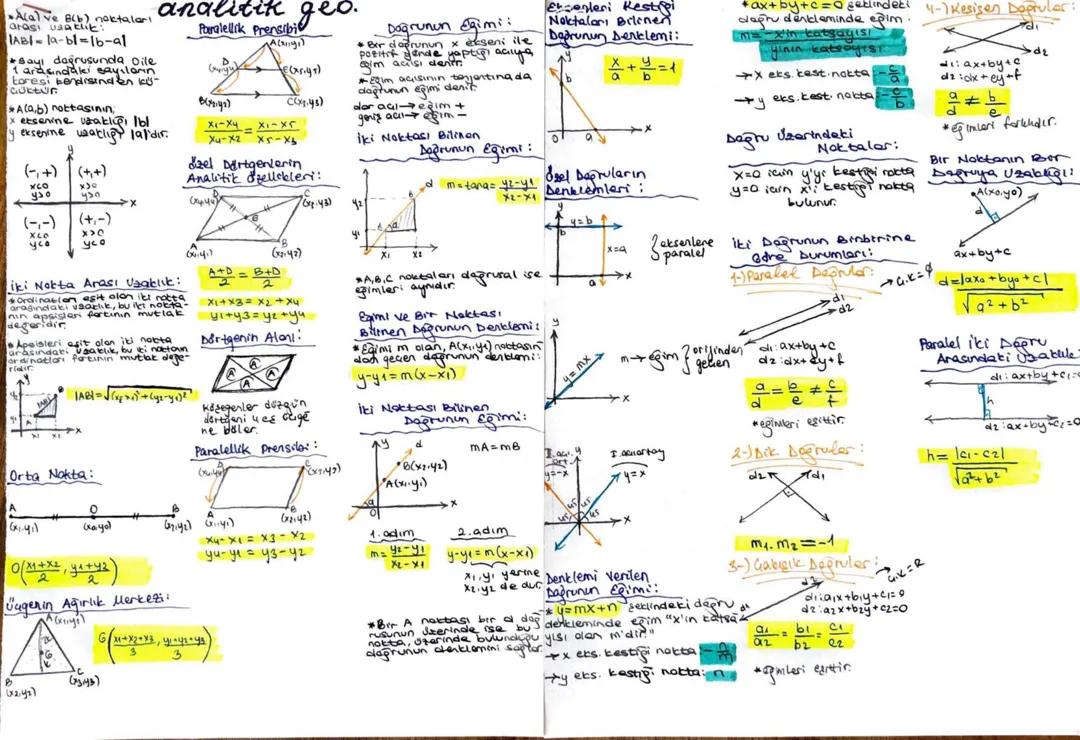 analitik geo.
*A(a) ve B(b) noktaları
arası uzaklık:
|AB|=|a-b|=|b-a|
*Sayı doğrusunda 0 ile
1 arasındaki sayıların
karesi kendisinden kü-
çüktür.
*A(a,b) noktasının;
x eksenine uzaklığı |b|
y eksenine uzaklığı |a|'dır.
y
(-,+)
x<0
y>0
(+,+)
x>0
y>0
x
(-,-)
x<0
y<0
(+,-)
x>0
y<0
İki Nokta Arası Uzaklık:
*Ordinatları eşit olan iki nokta
arasındaki uzaklık, bu iki nokta-
nın apsisleri farkının mutlak
değeridir.
*Apsisleri eşit olan iki nokta
arasındaki uzaklık, bu iki noktanın
ordinatları farkının mutlak değe-
ridir.
y
B
A
x1 x2
x
|AB|=√(x2-x1)²+(y2-y1)²
Orta Nokta:
A
O
B
(x1,y1)
(x0,y0)
(x2,y2)
O(x1+x2/2, y1+y2/2)
Üçgenin Ağırlık Merkezi:
A(x1,y1)
G
B
(x2,y2)
C
(x3,y3)
G(x1+x2+x3/3, y1+y2+y3/3)
Paralellik Prensibi
A(x1,y1)
D
(x4,y4)
E(x5,y5)
B(x2,y2)
C(x3,y3)
x1-x4/x4-x2 = x1-x5/x5-x3
Özel Dörtgenlerin
Analitik Özellikleri:
D
(x4,y4)
C
(x3,y3)
A
(x1,y1)
B
(x2,y2)
A+D/2 = B+D/2
x1+x3=x2+x4
y1+y3=y2+y4
Dörtgenin Alanı:
A A A A
Köşegenler düzgün
dörtgeni 4 eş üçge
ne böler.
Paralellik Prensibi:
D
(x4,y4)
C
(x3,y3)
A
(x1,y1)
B
(x2,y2)
x4-x1=x3-x2
y4-y1=y3-y2
Doğrunun Eğimi:
*Bir doğrunun x ekseni ile
pozitif yönde yaptığı açıya
eğim açısı denir.
*Eğim açısının tanjantına da
doğrunun eğimi denir.
dar açı→eğim +
geniş açı→eğim -
İki Noktası Bilinen
Doğrunun Eğimi:
y2
y1
A
B
d
a
x1 x2
m=tana=y2-y1/x2-x1
*A,B,C noktaları doğrusal ise
eğimleri aynıdır.
Eğimi ve Bir Noktası
Bilinen Doğrunun Denklemi:
*Eğimi m olan, A(x1,y1) noktasın
dan geçen doğrunun denklemi:
y-y1=m(x-x1)
İki Noktası Bilinen
Doğrunun Eğimi:
y
d
B(x2,y2)
A(x1,y1)
x
mA=mB
1.adım
m=y2-y1/x2-x1
2.adım
y-y1=m(x-x1)
x1,y1 yerine
x2,y2 de olur.
*Bir A noktası bir d doğ
rusunun üzerinde ise bu
nokta, üzerinde bulunduğu
doğrunun denklemini sağlar.
Eksenleri Kestiği
Noktaları Bilinen
Doğrunun Denklemi:
y
b
0
a
x
x/a + y/b = 1
Özel Doğruların
Denklemleri:
y
y=b
b
x=a
a
x
eksenlere
paralel
y
y=mx
x
m→eğim
orijinden
geçen
II.açı
ort.
y=-x
y
I.açıortay
y=x
45 45
45 45
x
Denklemi Verilen
Doğrunun Eğimi:
*y=mx+n şeklindeki doğru
denkleminde eğim "x'in katsa
yısı olan m'dir."
→x eks. kestiği nokta: -n/m
→y eks. kestiği nokta: n
*ax+by+c=0 şeklindeki
doğru denkleminde eğim:
m=-x'in katsayısı
y'nin katsayısı
→x eks.kest.nokta: -c/a
→y eks.kest.nokta: -c/b
Doğru Üzerindeki
Noktalar:
x=0 için y'yi kestiği nokta
y=0 için x'i kestiği nokta
bulunur.
İki Doğrunun Birbirine
Göre Durumları:
1-)Paralel Doğrular:
→Ç.K=∅
d1
d2
d1:ax+by+c
d2:dx+ey+f
a/d = b/e ≠ c/f
*eğimleri eşittir.
2-)Dik Doğrular:
d2
d1
m1.m2=-1
3-)Çakışık Doğrular:
→Ç.K=R
d2
d1
d1:a1x+b1y+c1=0
d2:a2x+b2y+c2=0
a1/a2 = b1/b2 = c1/c2
*eğimleri eşittir.
4-)Kesişen Doğrular:
d1
d2
d1:ax+by+c
d2:dx+ey+f
a/d ≠ b/e
*eğimleri farklıdır.
Bir Noktanın Bir
Doğruya Uzaklığı:
A(x0,y0)
d
ax+by+c
d=|ax0+by0+c|/√a²+b²
Paralel İki Doğru
Arasındaki Uzaklık:
d1:ax+by+c1=
h
d2:ax+by+c2=0
h=|c1-c2|/√a²+b²